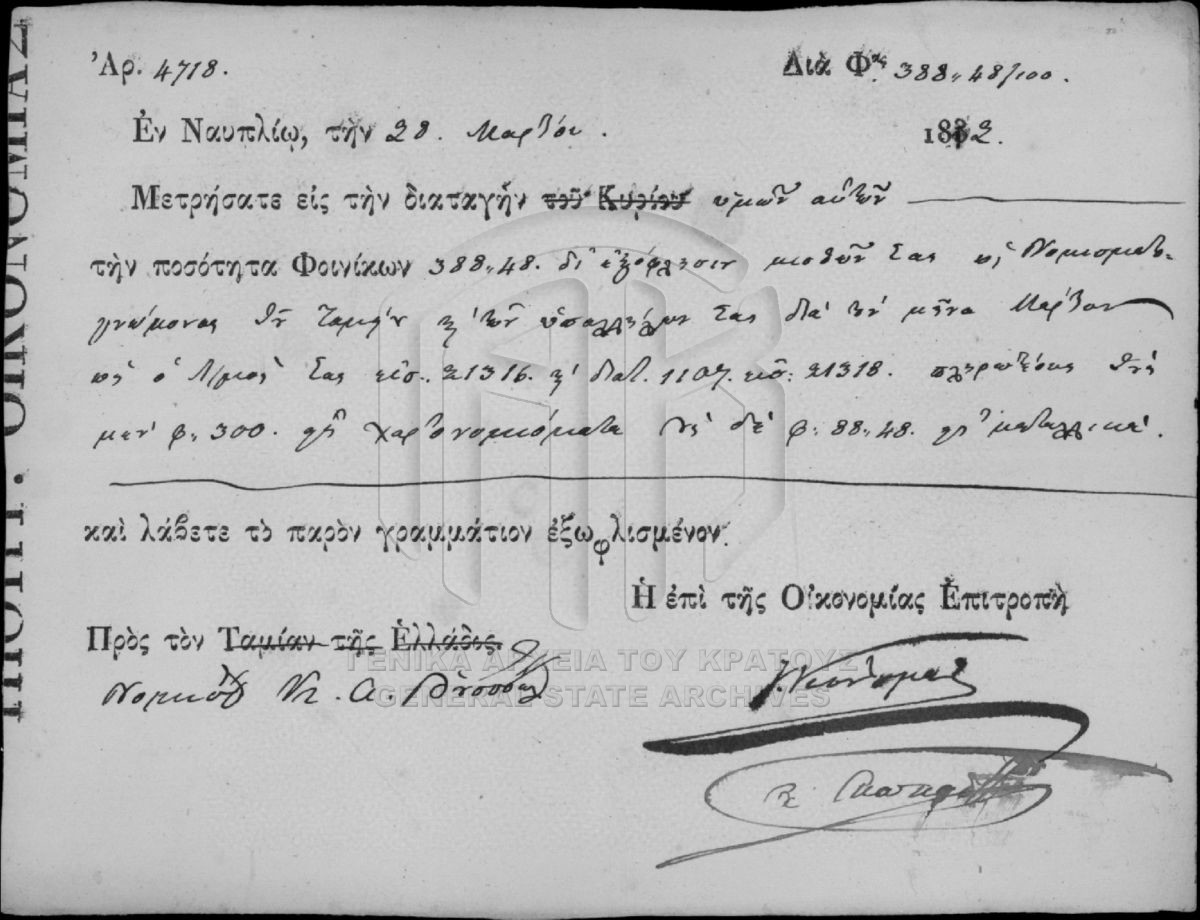 Ἀρ. 4718.
Διὰ Φ. 388,,48/100.
Ἐν Ναυπλίῳ, τὴν 28. Μαρτίου. 1832.
Μετρήσατε εἰς τὴν διαταγὴν τοῦ Κυρίου ὑμῶν αὐτῶν
τὴν ποσότητα Φοινίκων 388,,48. δι' ἐξόφλησιν μισθῶν σας ὡς Νομισματο-
γνώμονας τῶν ὑπαλλήλων σας διὰ τὸν μῆνα Μάρτιον
ὡς ὁ σας 21316. 1107. 21318. πληρωτέους τοὺς
μὲν φ. 300. χαρτονομίσματα τοὺς δὲ φ. 88,,48. μεταλλικά.
καὶ λάβετε τὸ παρὸν γραμμάτιον ἐξωφλισμένον.
Ἡ ἐπὶ τῆς Οἰκονομίας Ἐπιτροπὴ
Πρὸς τὸν Ταμίαν τῆς Ἑλλάδος.
ΓΕΝΙΚΑ ΑΡΧΕΙΑ ΤΟΥ ΚΡΑΤΟΥΣ
GENERAL STATE ARCHIVES
ΟΙΚΟΝΟΜΙΑΣ